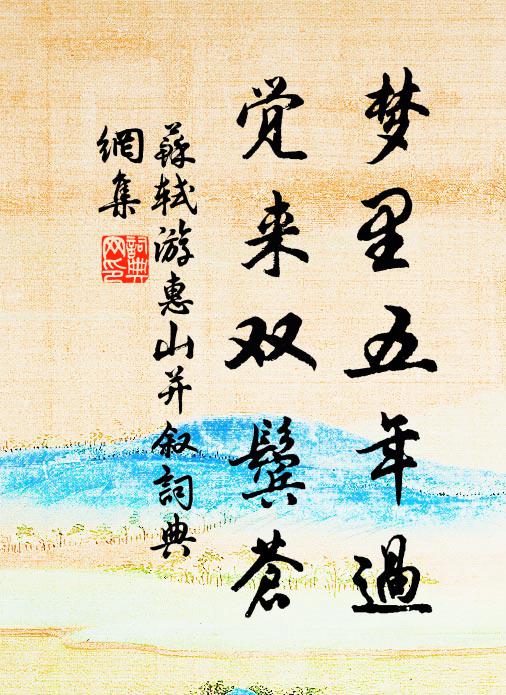 梦里五年過
覚来双鬓蒼
蘇轼游惠山并叙詞典
網集
詞典
网印